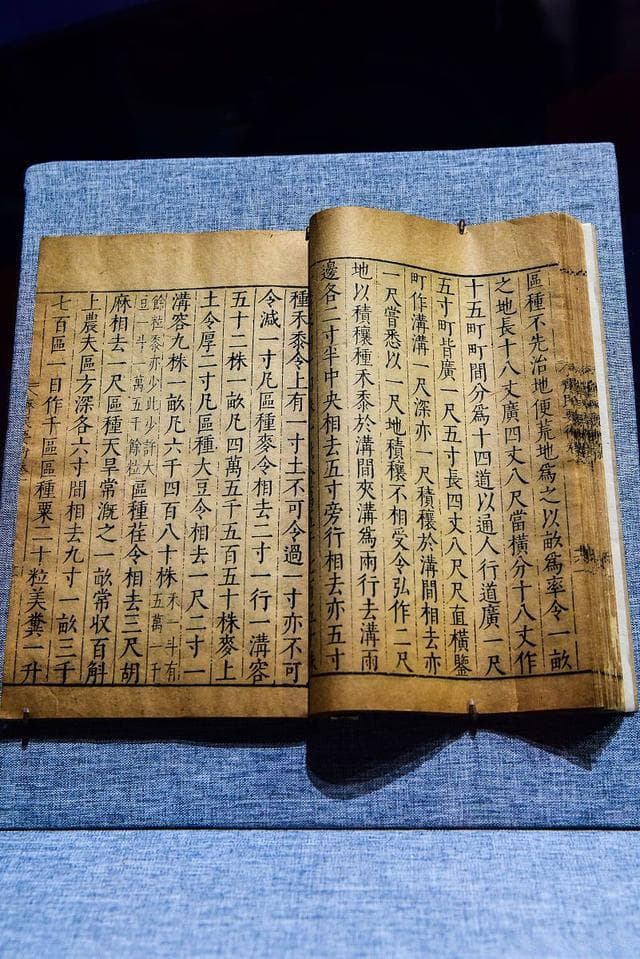 區種不先治地便荒地爲之以畝爲率令一畝
之地長十八丈廣四丈八尺當橫分十八丈作
十五町町間分爲十四道以通人行道廣一尺
五寸町皆廣一尺五寸長四丈八尺尺直橫鑿
町作溝溝一尺深亦一尺積穰於溝間相去亦
一尺嘗悉以一尺地積穰不相受令弘作二尺
地以積穰種禾黍於溝間夾溝爲兩行去溝兩
邊各二寸半中央相去五寸旁行相去亦五寸
種禾黍令上有一寸土不可令過一寸亦不可
令減一寸凡區種麥令相去二寸一行一溝容
五十二株一畝凡四萬五千五百五十株麥上
土令厚二寸凡區種大豆令相去一尺二寸一
溝容九株一畝凡六千四百八十株禾一斗有五萬一千
餘粒黍亦少此少許大豆一斗一萬五千餘粒區種荏令相去三尺胡
麻相去一尺區種天旱常漑之一畝常収百斛
上農夫區方深各六寸間相去九寸一畝三千
七百區一日作千區區種粟二十粒美糞一升